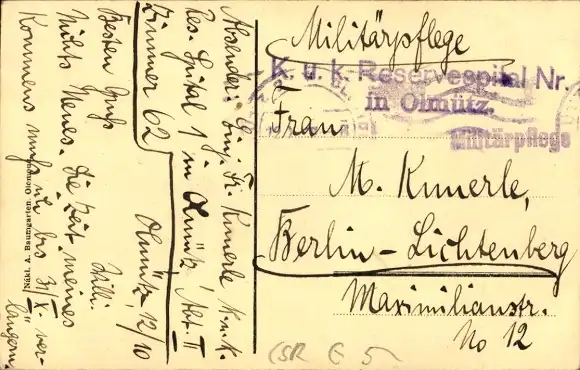 Militärpflege
K. u. k. Reservespital Nr.
in Olmütz.
Militärpflege
Frau
M. Kunerle,
Berlin-Lichtenberg
Maximilianstr.
No 12
Absender: Ing. Fr. Kunerle k.u.k.
Res. Spital 1 in Olmütz / Abt. II
Zimmer 62
Olmütz 12/10
Besten Gruß
Willi.
Nichts Neues. Die Zeit meines
Kommens muß ich bis 31/X. ver-
längern.
Nakl. A. Baumgarten.
ČSR 5